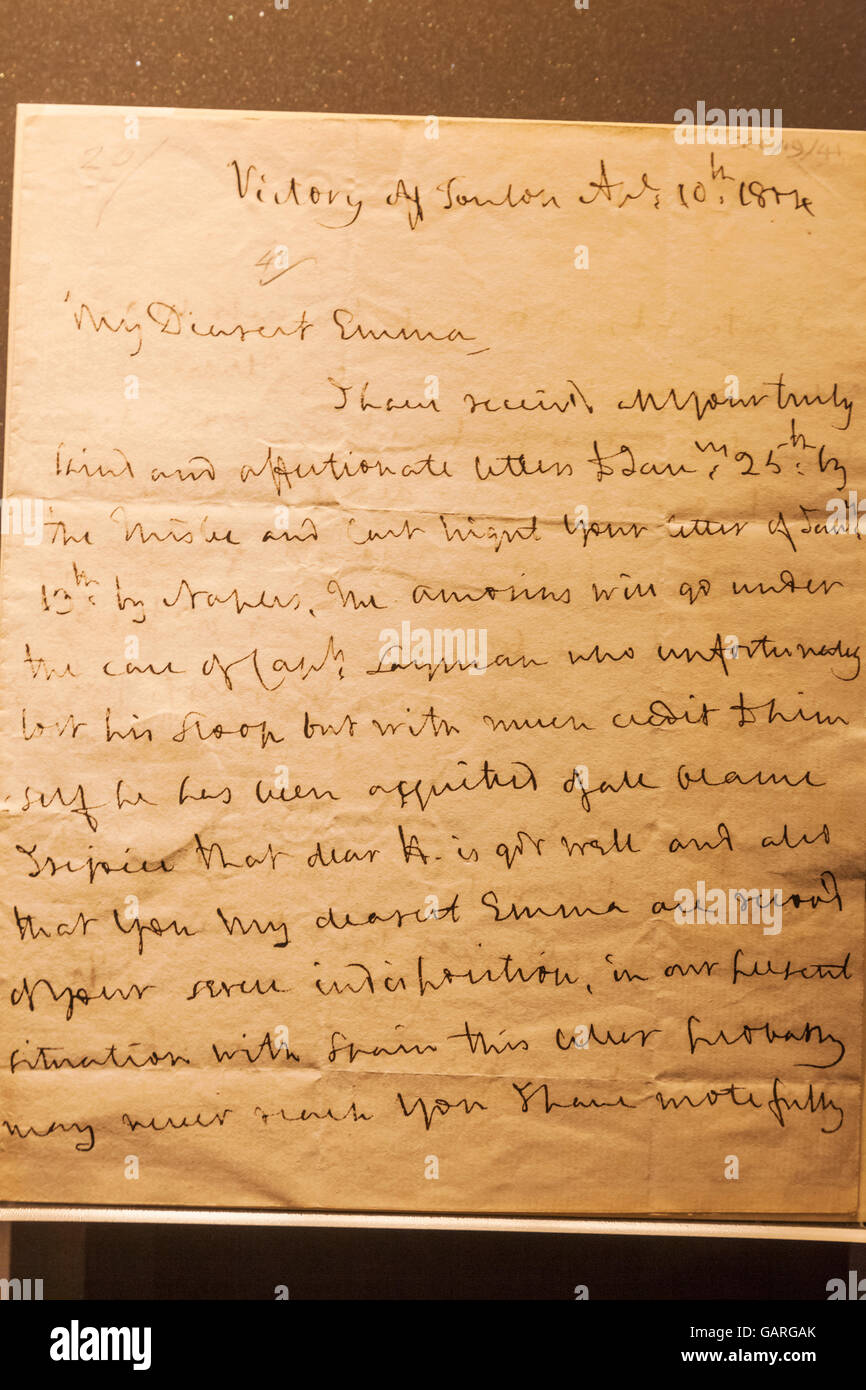 Victory off Toulon Apl: 10th: 1804
My Dearest Emma
I have received all your truly
kind and affectionate letters to Jany: 25th: by
the Thisbe and last night your letter of Jany:
13th: by Naples, the amorins will go under
the care of Capt: Layman who unfortunately
lost his sloop but with much credit to him
self he has been acquitted of all blame
I rejoice that dear H. is got well and also
that you My dearest Emma are recov'd
of your severe indisposition, in our present
situation with Spain this letter probably
may never reach you I have wrote fully
alamy stock photo
GARGAK
www.alamy.com